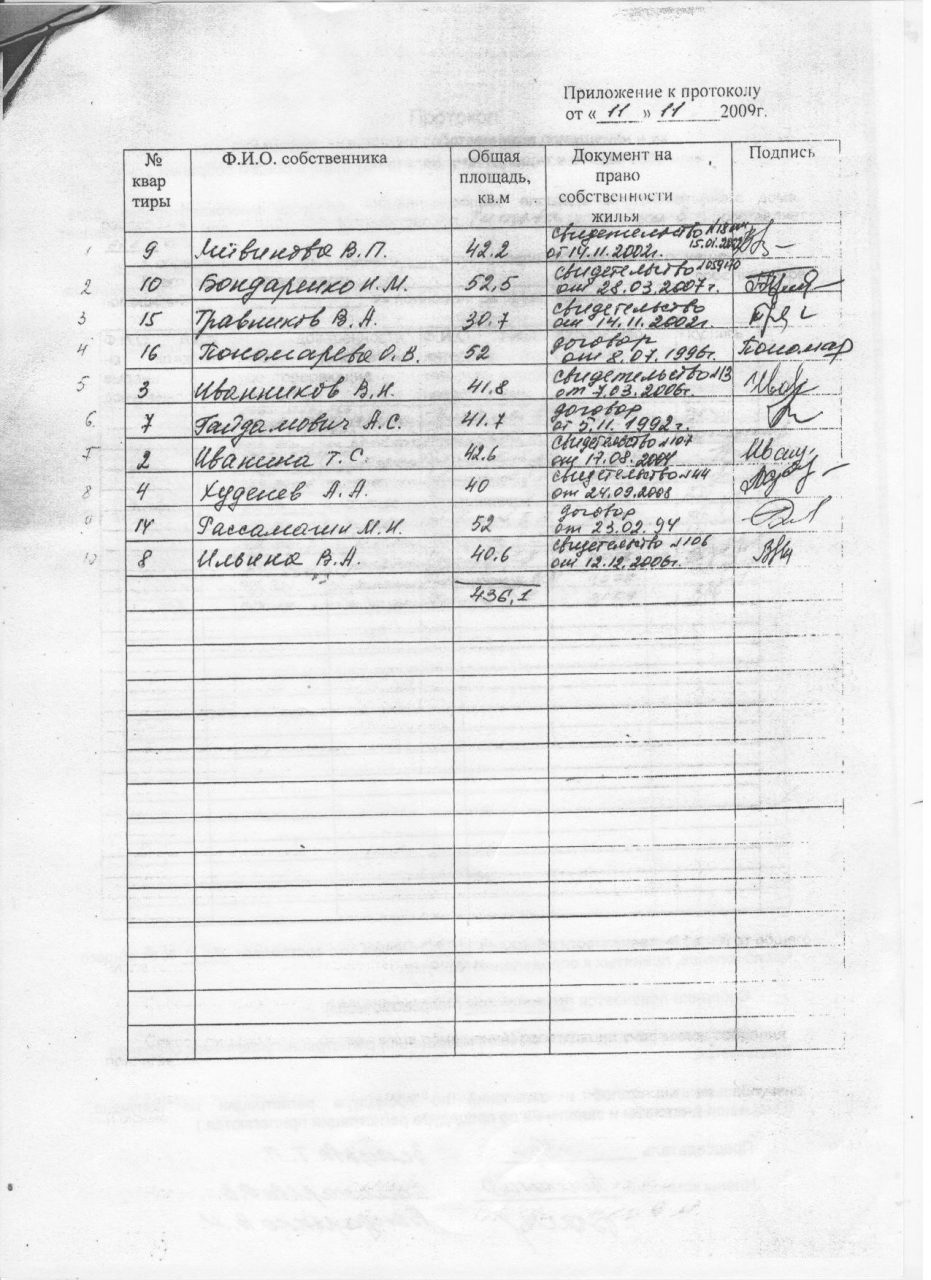 Приложение к протоколу
от « 11 » 11 2009г.
№ квартиры Ф.И.О. собственника Общая площадь, кв.м Документ на право собственности жилья Подпись
1 9 В.П. 42.2 свидетельство от 14.11.2002г. 15.01.2002
2 10 Бондаренко Н.М. 52,5 свидетельство от 28.03.2007г.
3 15 Травников В.А. 30.7 свидетельство от 14.11.2002г.
4 16 Пономарева О.В. 52 договор от 8.07.1996г. Пономар
5 3 Иванников В.Н. 41.8 свидетельство №13 от 7.03.2006г.
6. 7 Гайдамович А.С. 41.7 договор от 5.11.1992г.
7 2 Иванина Т.С. 42.6 свидетельство №107 от 17.08.2004
8 4 Худенев А.А. 40 свидетельство №44 от 24.09.2008
14 Рассамагин М.И. 52 договор от 23.02.94
10 8 Ильина В.А. 40.6 свидетельство №106 от 12.12.2006г.
436,1